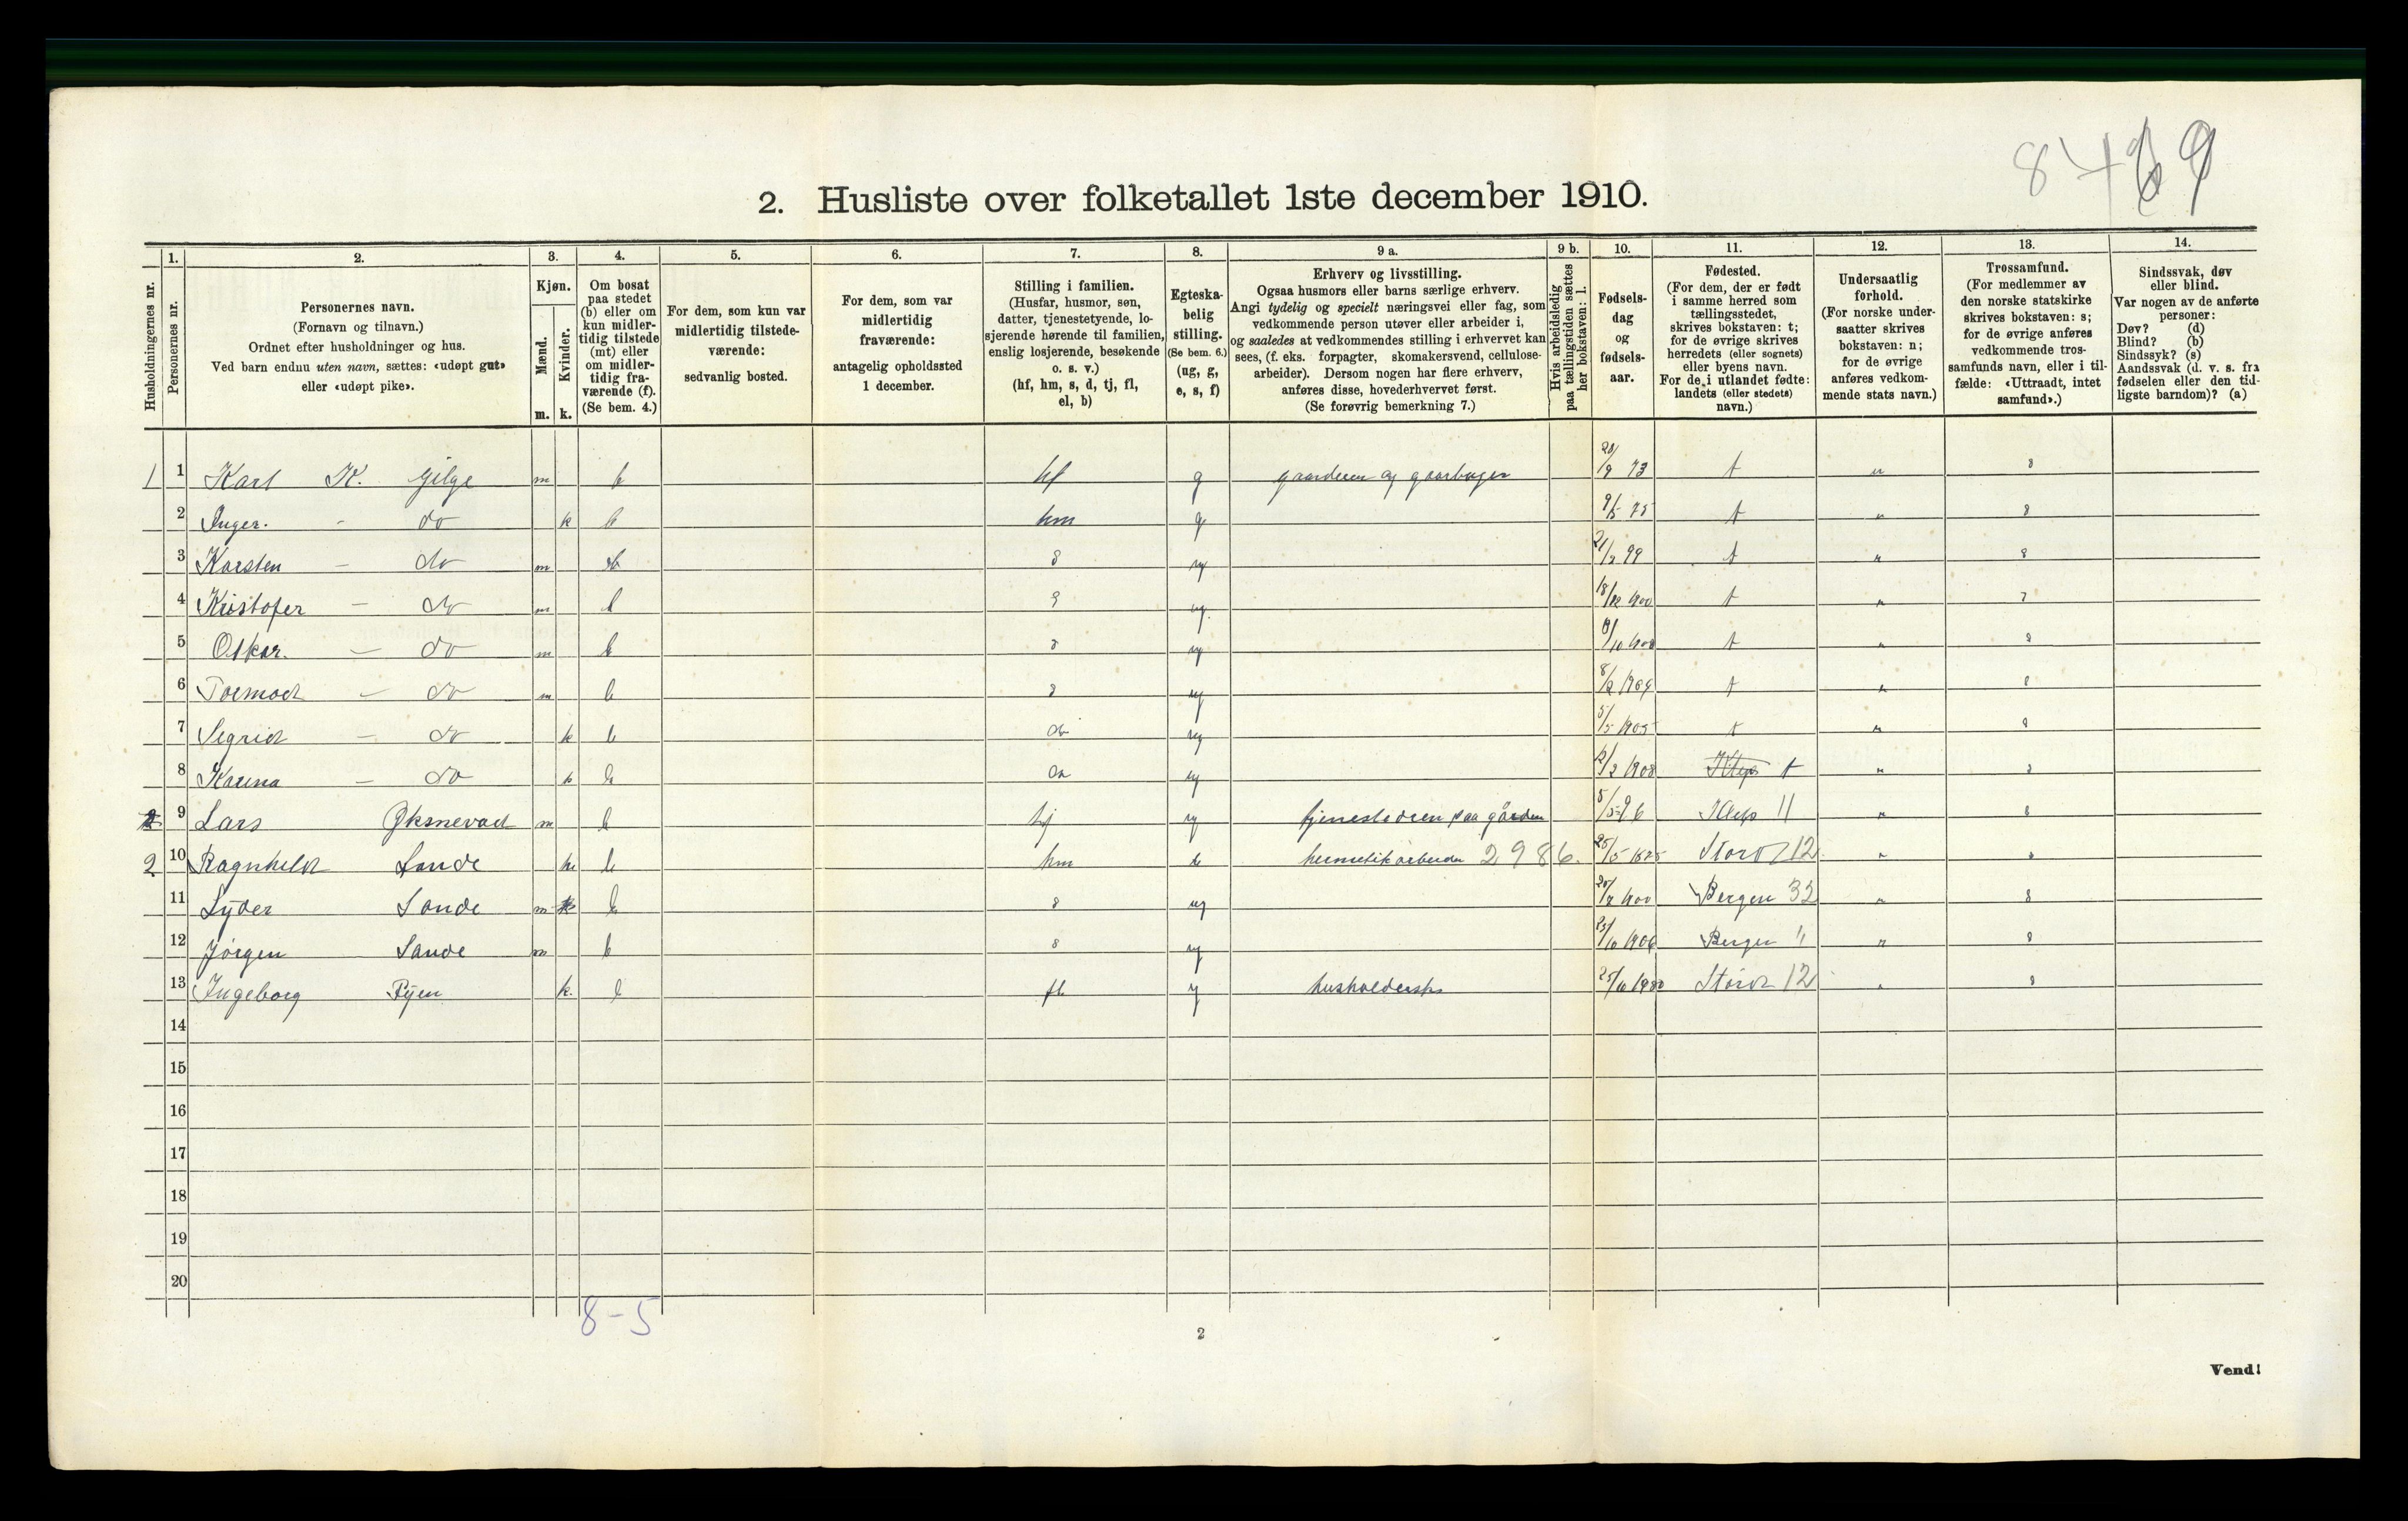 8469
2. Husliste over folketallet 1ste december 1910.
Husholdningernes nr.
1. Personernes nr.
2. Personernes navn.
(Fornavn og tilnavn.)
Ordnet efter husholdninger og hus.
Ved barn endnu uten navn, sættes: «udøpt gut»
eller «udøpt pike».
3. Kjøn.
Mænd. m.
Kvinder. k.
4. Om bosat
paa stedet
(b) eller om
kun midler-
tidig tilstede
(mt) eller
om midler-
tidig fra-
værende (f).
(Se bem. 4.)
5. For dem, som kun var
midlertidig tilstede-
værende:
sedvanlig bosted.
6. For dem, som var
midlertidig
fraværende:
antagelig opholdssted
1 december.
7. Stilling i familien.
(Husfar, husmor, søn,
datter, tjenestetyende, lo-
sjerende hørende til familien,
enslig losjerende, besøkende
o. s. v.)
(hf, hm, s, d, tj, fl,
el, b)
8. Egteska-
belig
stilling.
(Se bem. 6.)
(ug, g,
e, s, f)
9 a. Erhverv og livsstilling.
Ogsaa husmors eller barns særlige erhverv.
Angi tydelig og specielt næringsvei eller fag, som
vedkommende person utøver eller arbeider i,
og saaledes at vedkommendes stilling i erhvervet kan
sees, (f. eks. forpagter, skomakersvend, cellulose-
arbeider). Dersom nogen har flere erhverv,
anføres disse, hovederhvervet først.
(Se forøvrig bemerkning 7.)
9 b. Hvis arbeidsledig
paa tællingstiden sættes
her bokstaven: l.
10. Fødsels-
dag
og
fødsels-
aar.
11. Fødested.
(For dem, der er født
i samme herred som
tællingsstedet,
skrives bokstaven: t;
for de øvrige skrives
herredets (eller sognets)
eller byens navn.
For de i utlandet fødte:
landets (eller stedets)
navn.)
12. Undersaatlig
forhold.
(For norske under-
saatter skrives
bokstaven: n;
for de øvrige
anføres vedkom-
mende stats navn.)
13. Trossamfund.
(For medlemmer av
den norske statskirke
skrives bokstaven: s;
for de øvrige anføres
vedkommende tros-
samfunds navn, eller i til-
fælde: «Uttraadt, intet
samfund».)
14. Sindssvak, døv
eller blind.
Var nogen av de anførte
personer:
Døv? (d)
Blind? (b)
Sindssyk? (s)
Aandssvak (d. v. s. fra
fødselen eller den tid-
ligste barndom)? (a)
1 1 Karl K. Gilge m b hf g 20/9 73 t n s
2 Inger - do k b hm g 9/5 75 t n s
3 Karsten - do m b s ug 99 t n s
4 Kristofer - do m b s ug 18/12 900 t n s
5 Oskar - do m b s ug t n s
6 Tormod - do m b s ug t n s
7 Sigrid - do k b d ug 5/5 1905 t n s
8 - do k b d ug 1908 Klep t n s
9 Lars Øksnevad m b tj ug 5/5 96 Klep 11 n s
2 10 Ragnhild Sande k b hm 2986. 25/5 Stord 12 n s
11 Lyder Sande m b s ug 900 Bergen 32 n s
12 Jørgen Sande m b s ug 1906 Bergen " n s
13 Ingeborg k. b fl Stord 12 n s
14
15
16
17
18
19
20
8-5
2
Vend!